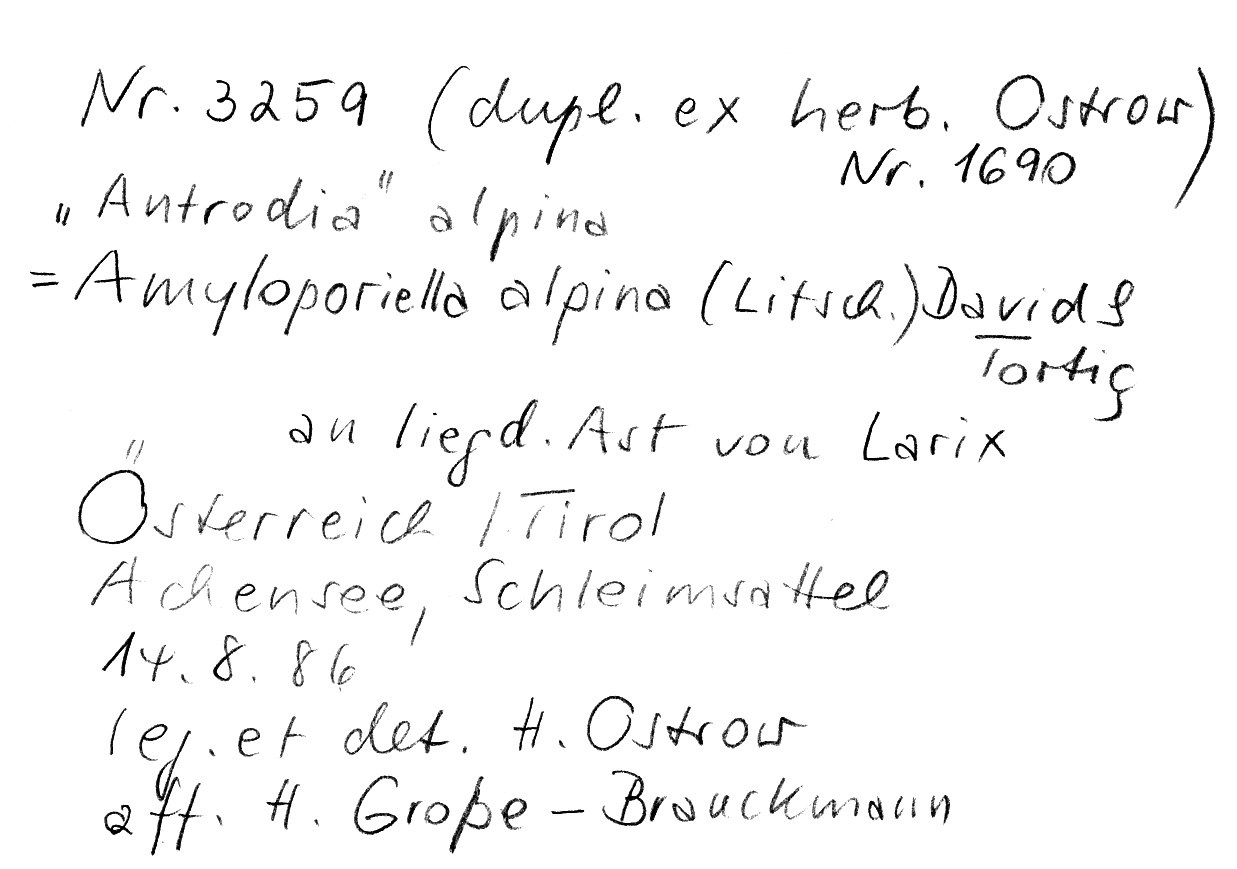 Nr. 3259 (dupl. ex herb. Ostrow
Nr. 1690)
„Antrodia" alpina
= Amyloporiella alpina (Litsch.) David &
Tortiç
an liegd. Ast von Larix
Österreich / Tirol
Achensee, Schleimsattel
14.8.86
leg. et det. H. Ostrow
aff. H. Große-Brauckmann